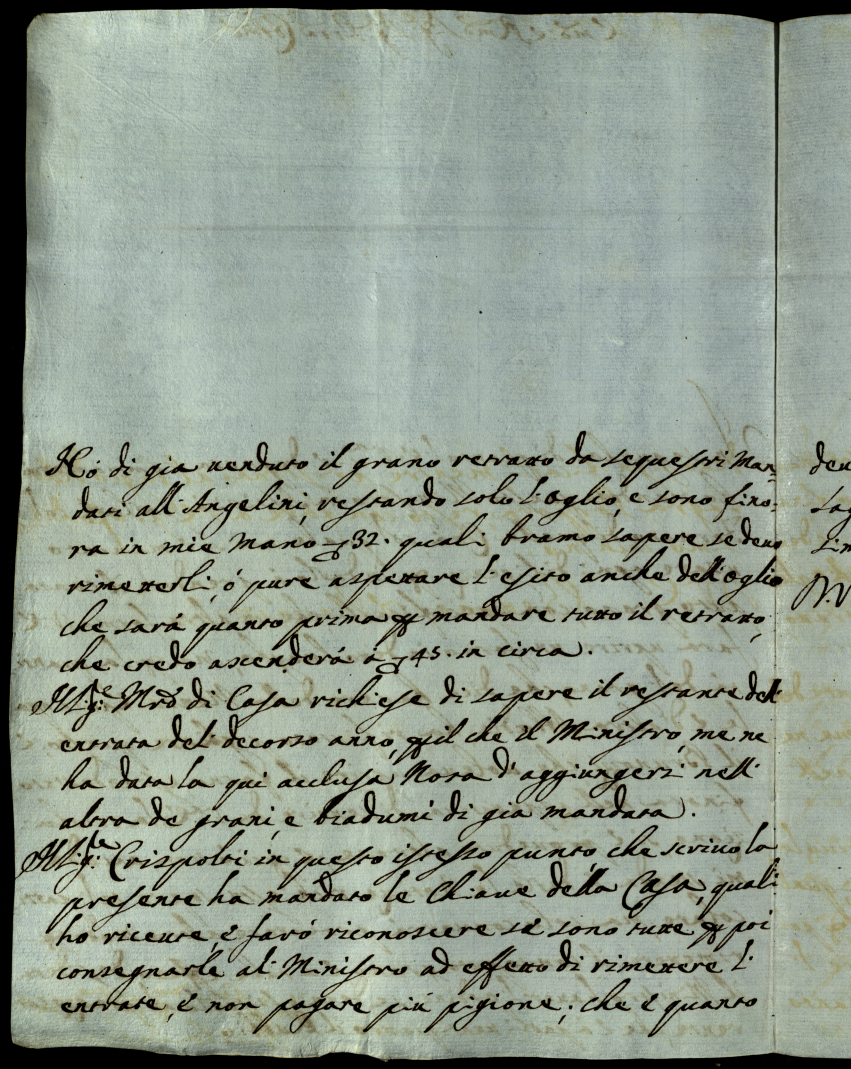 Hò di gia uenduto il grano retratto da sequestri Man=
dati all'Angelini, restando solo l'oglio, e sono fino=
ra in mie mano 32. quali bramo sapere se deuo
rimetterli, ò pure aspettare l'esito anche dell'oglio
che sarà quanto prima p mandare tutto il retratto,
che credo ascenderà à 45. in circa.
Il Sig.re Mrõ di Casa richiese di sapere il restante dell'
entrata del decorso anno, p il che il Ministro, me ne
ha data la qui acclusa Nota d'aggiungersi nell'
altra de grani, e biadumi di gia mandata.
Il Sig.re Crispolti in questo istesso punto, che scriuo la
presente ha mandato le Chiaue della Casa, quali
ho riceute, è farò riconoscere se sono tutte p poi
consegnarle al Ministro ad effetto di rimettere l'
entrate, è non pagare più pigione; che è quanto
deu
sag